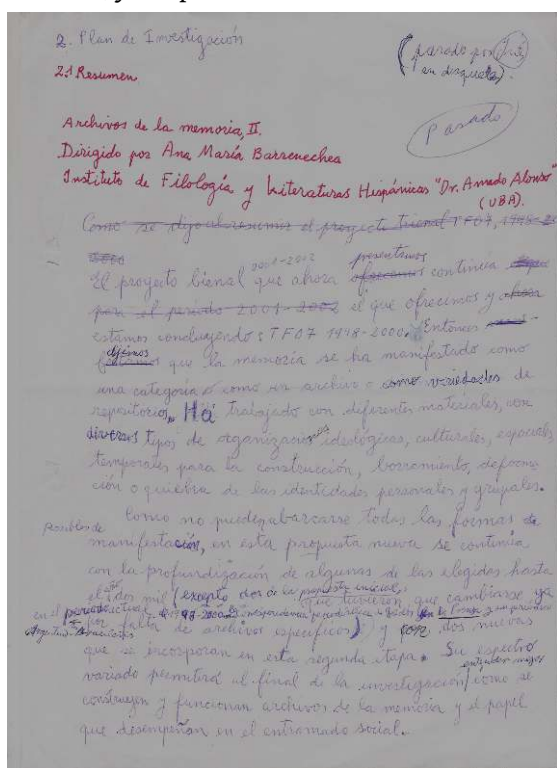 2. Plan de Investigación
(pasado por
en disquete).
2.1 Resumen
Pasado
Archivos de la memoria, II.
Dirigido por Ana María Barrenechea
Instituto de Filología y Literaturas Hispánicas "Dr. Amado Alonso"
(UBA).
Como se dijo al resumir el proyecto trienal TF07, 1998-20
2001-2002 presentamos
El proyecto bienal que ahora ofrecemos continúa
por el período 2001-2002 el que ofrecimos y ahora
estamos concluyendo: TF07 1998-2000. Entonces
dijimos
que la memoria se ha manifestado como
una categoría o como un archivo o como variedades de
repositorios. Ha trabajado con diferentes materiales, con
diversos tipos de organización ideológicas, culturales, espaciales,
temporales para la construcción, borramiento, deforma
ción o quiebra de las identidades personales y grupales.
Como no puede abarcarse todas las formas de
posibles de
manifestación, en esta propuesta nueva se continúa
con la profundización de algunas de las elegidas hasta
el año dos mil (excepto dos de la propuesta inicial,
que tuvieron que cambiarse ya
en el período actual
por falta de archivos específicos) y con dos nuevas
que se incorporan en esta segunda etapa. Su espectro
entender mejor
variado permitirá al final de la investigación como se
construyen y funcionan archivos de la memoria y el papel
que desempeñan en el entramado social.